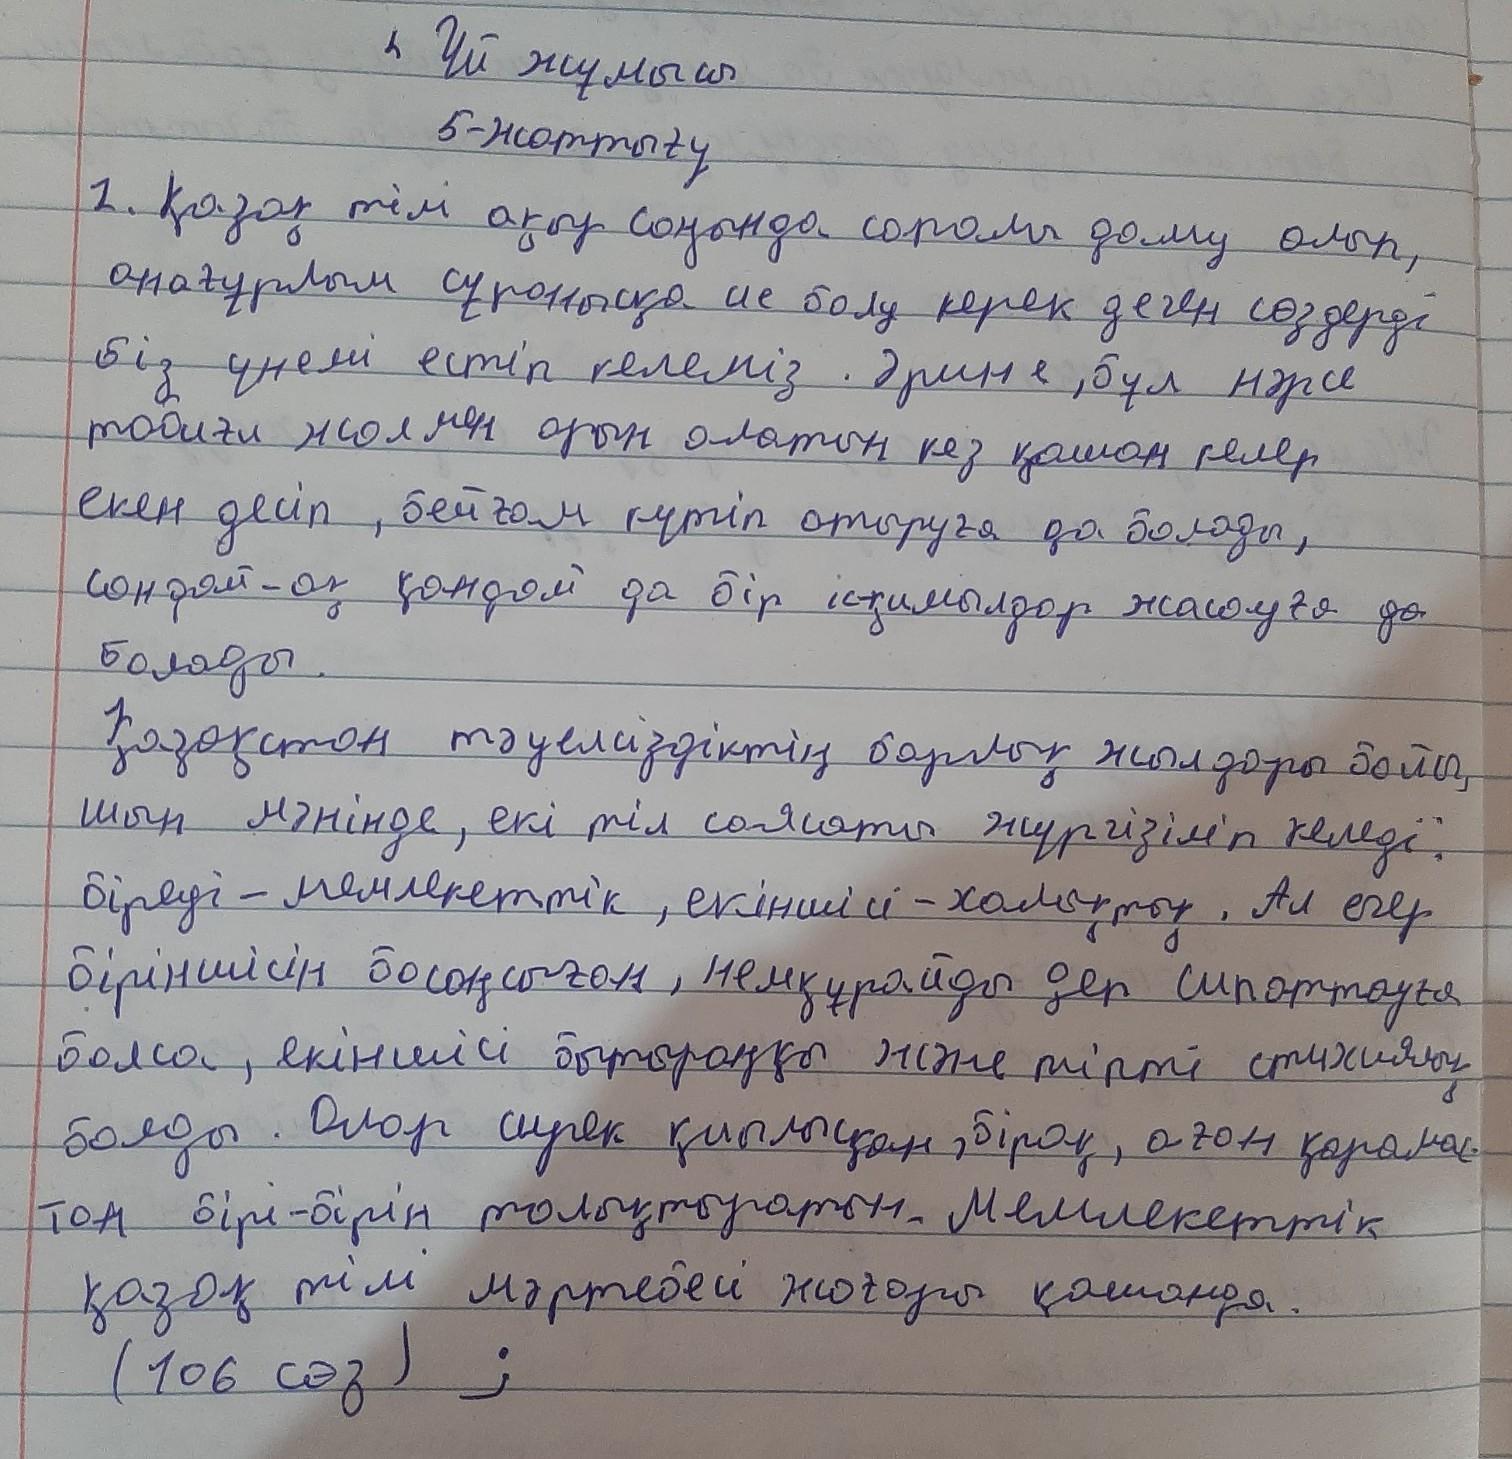 Үй жұмысы
5-жаттығу
1. Қазақ тілі ақыр соңында сапалы даму алып,
анағұрлым сұранысқа ие болу керек деген сөздерді
біз үнемі естіп келеміз. Әрине, бұл нәрсе
табиғи жолмен орын алатын кез қашан келер
екен десіп, бейғам күтіп отыруға да болады,
сондай-ақ қандай да бір ісқимылдар жасауға да
болады.
Қазақстан тәуелсіздіктің барлық жылдары бойы,
шын мәнінде, екі тіл саясаты жүргізіліп келеді:
біреуі - мемлекеттік, екіншісі - халықтық. Ал егер
біріншісін босаңсыған, немқұрайды деп сипаттауға
болса, екіншісі бытыраңқы және тіпті стихиялық
болды. Олар сирек қиылысқан, бірақ, оған қарамас-
тан бірі-бірін толықтыратын. Мемлекеттік
қазақ тілі мәртебесі жоғары қашанда.
(106 сөз) ;